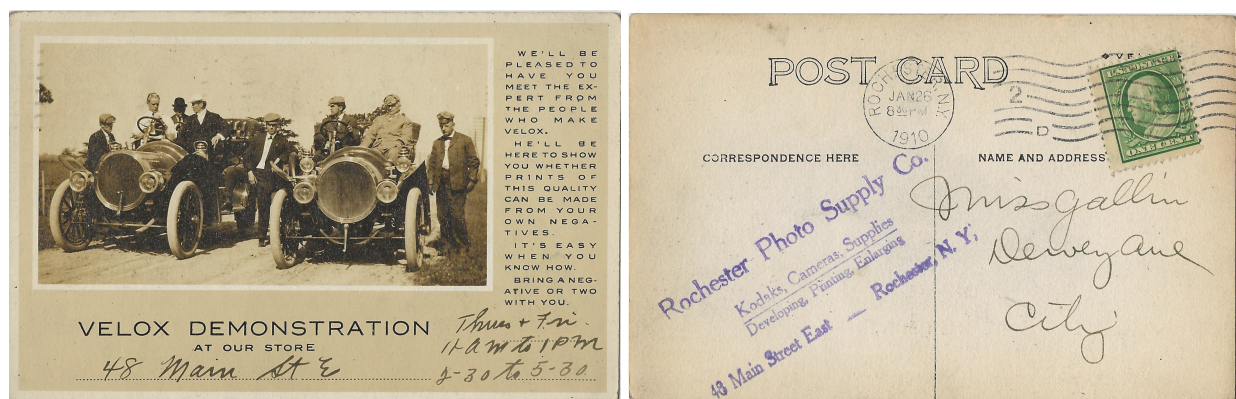 WE'LL BE
PLEASED TO
HAVE YOU
MEET THE EX-
PERT FROM
THE PEOPLE
WHO MAKE
VELOX.
HE'LL BE
HERE TO SHOW
YOU WHETHER
PRINTS OF
THIS QUALITY
CAN BE MADE
FROM YOUR
OWN NEGA-
TIVES.
IT'S EASY
WHEN YOU
KNOW HOW.
BRING A NEG-
ATIVE OR TWO
WITH YOU.
VELOX DEMONSTRATION
AT OUR STORE
48 Main St E
Thurs + Fri.
11 AM to 1 PM
2-30 to 5-30.
POST CARD
ROCHESTER, N.Y.
JAN 26
8 30 PM
1910
2
D
U.S. POSTAGE
ONE CENT
CORRESPONDENCE HERE
NAME AND ADDRESS
Rochester Photo Supply Co.
Kodaks, Cameras, Supplies
Developing, Printing, Enlarging
48 Main Street East — Rochester, N. Y.
Miss Gallin
Dewey Ave
City